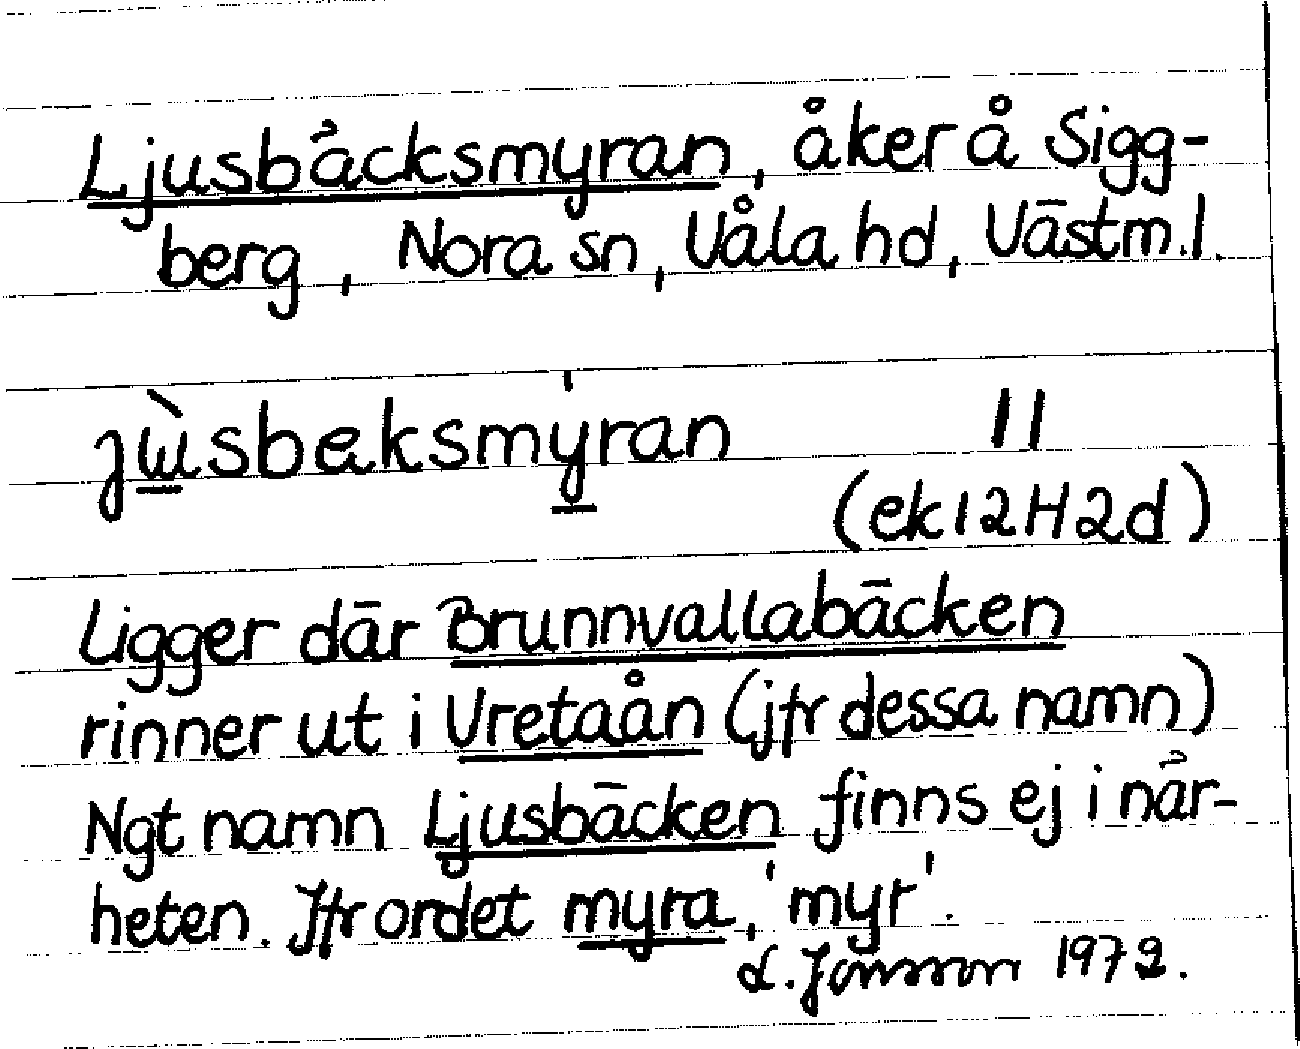 Ljusbäcksmyran, åker å Sigg-
berg, Nora sn, Våla hd, Västm.l.
jɯ̀sbɐksmy̍ran 11
(ek 12H2d)
Ligger där Brunnvallabäcken
rinner ut i Vretaån (jfr dessa namn)
Ngt namn Ljusbäcken finns ej i när-
heten. Jfr ordet myra, 'myr'.
L. Jönsson 1972.